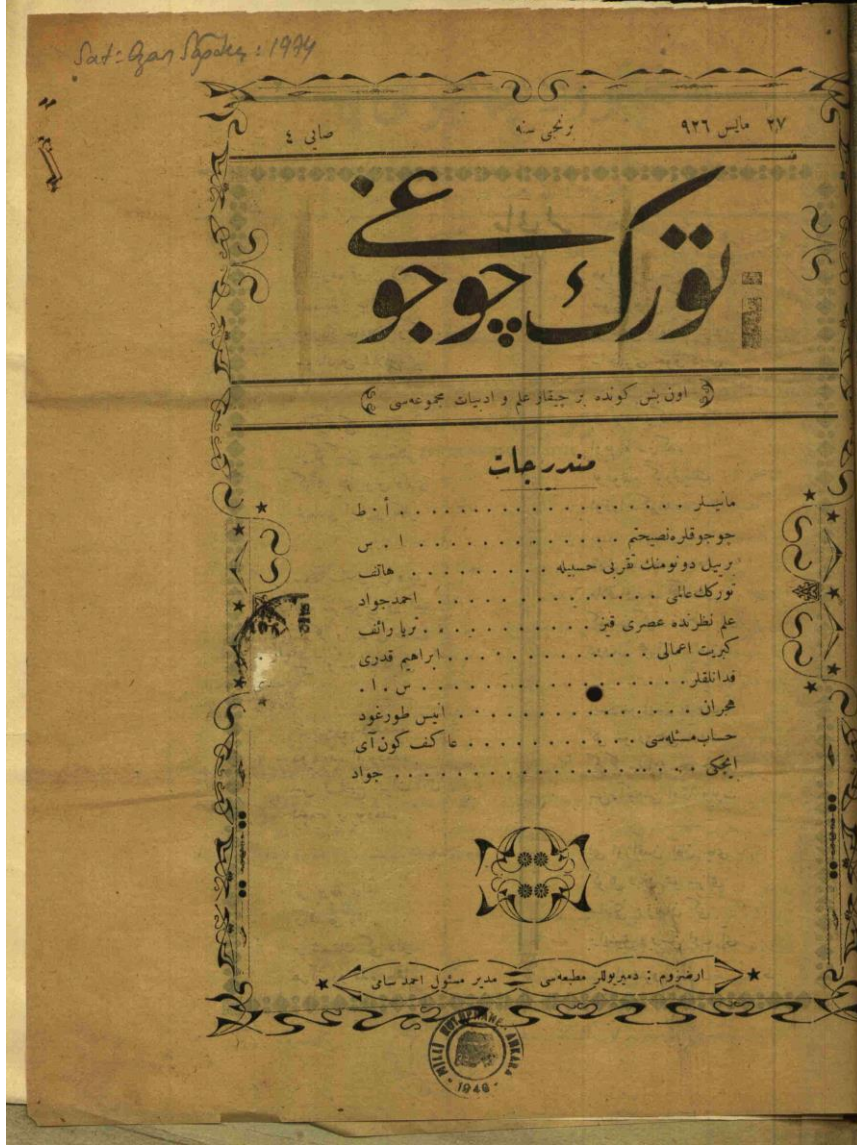 Sat: 1974
٢٧ مایس ٩٢٦ برنجی سنه صایی ٤
تورك چوجوغی
اون بش كونده بر چیقار علم و ادبیات مجموعه‌سی
مندرجات
مانیسلر . . . . . . . . . . . . . . . . . . أ . ط
چوجوقلره‌نصیحتم . . . . . . . . . . . . . . ا . س
بریيل دونومنك تقربی حسبیله . . . . . . . . . هاتف
تورك‌عالمی . . . . . . . . . . . . . . احمدجواد
علم نظرنده عصری قیز . . . . . . . . . . . ثریا رائف
كبریت اعمالی . . . . . . . . . . . . . ابراهیم قدری
فدانلقلر . . . . . . . . . . . . . . . . س . ا .
هجران . . . . . . . . . . . . . . انیس طورغود
حساب‌مسئله‌سی . . . . . . . . . . . عاكف كون آی
ایچكی . . . . . . . . . . . . . . . . . . جواد
ارضروم : دمیریوللر مطبعه‌سی = مدیر مسئول احمد سامی
MİLLİ KÜTÜPHANE · ANKARA
· 1946 ·